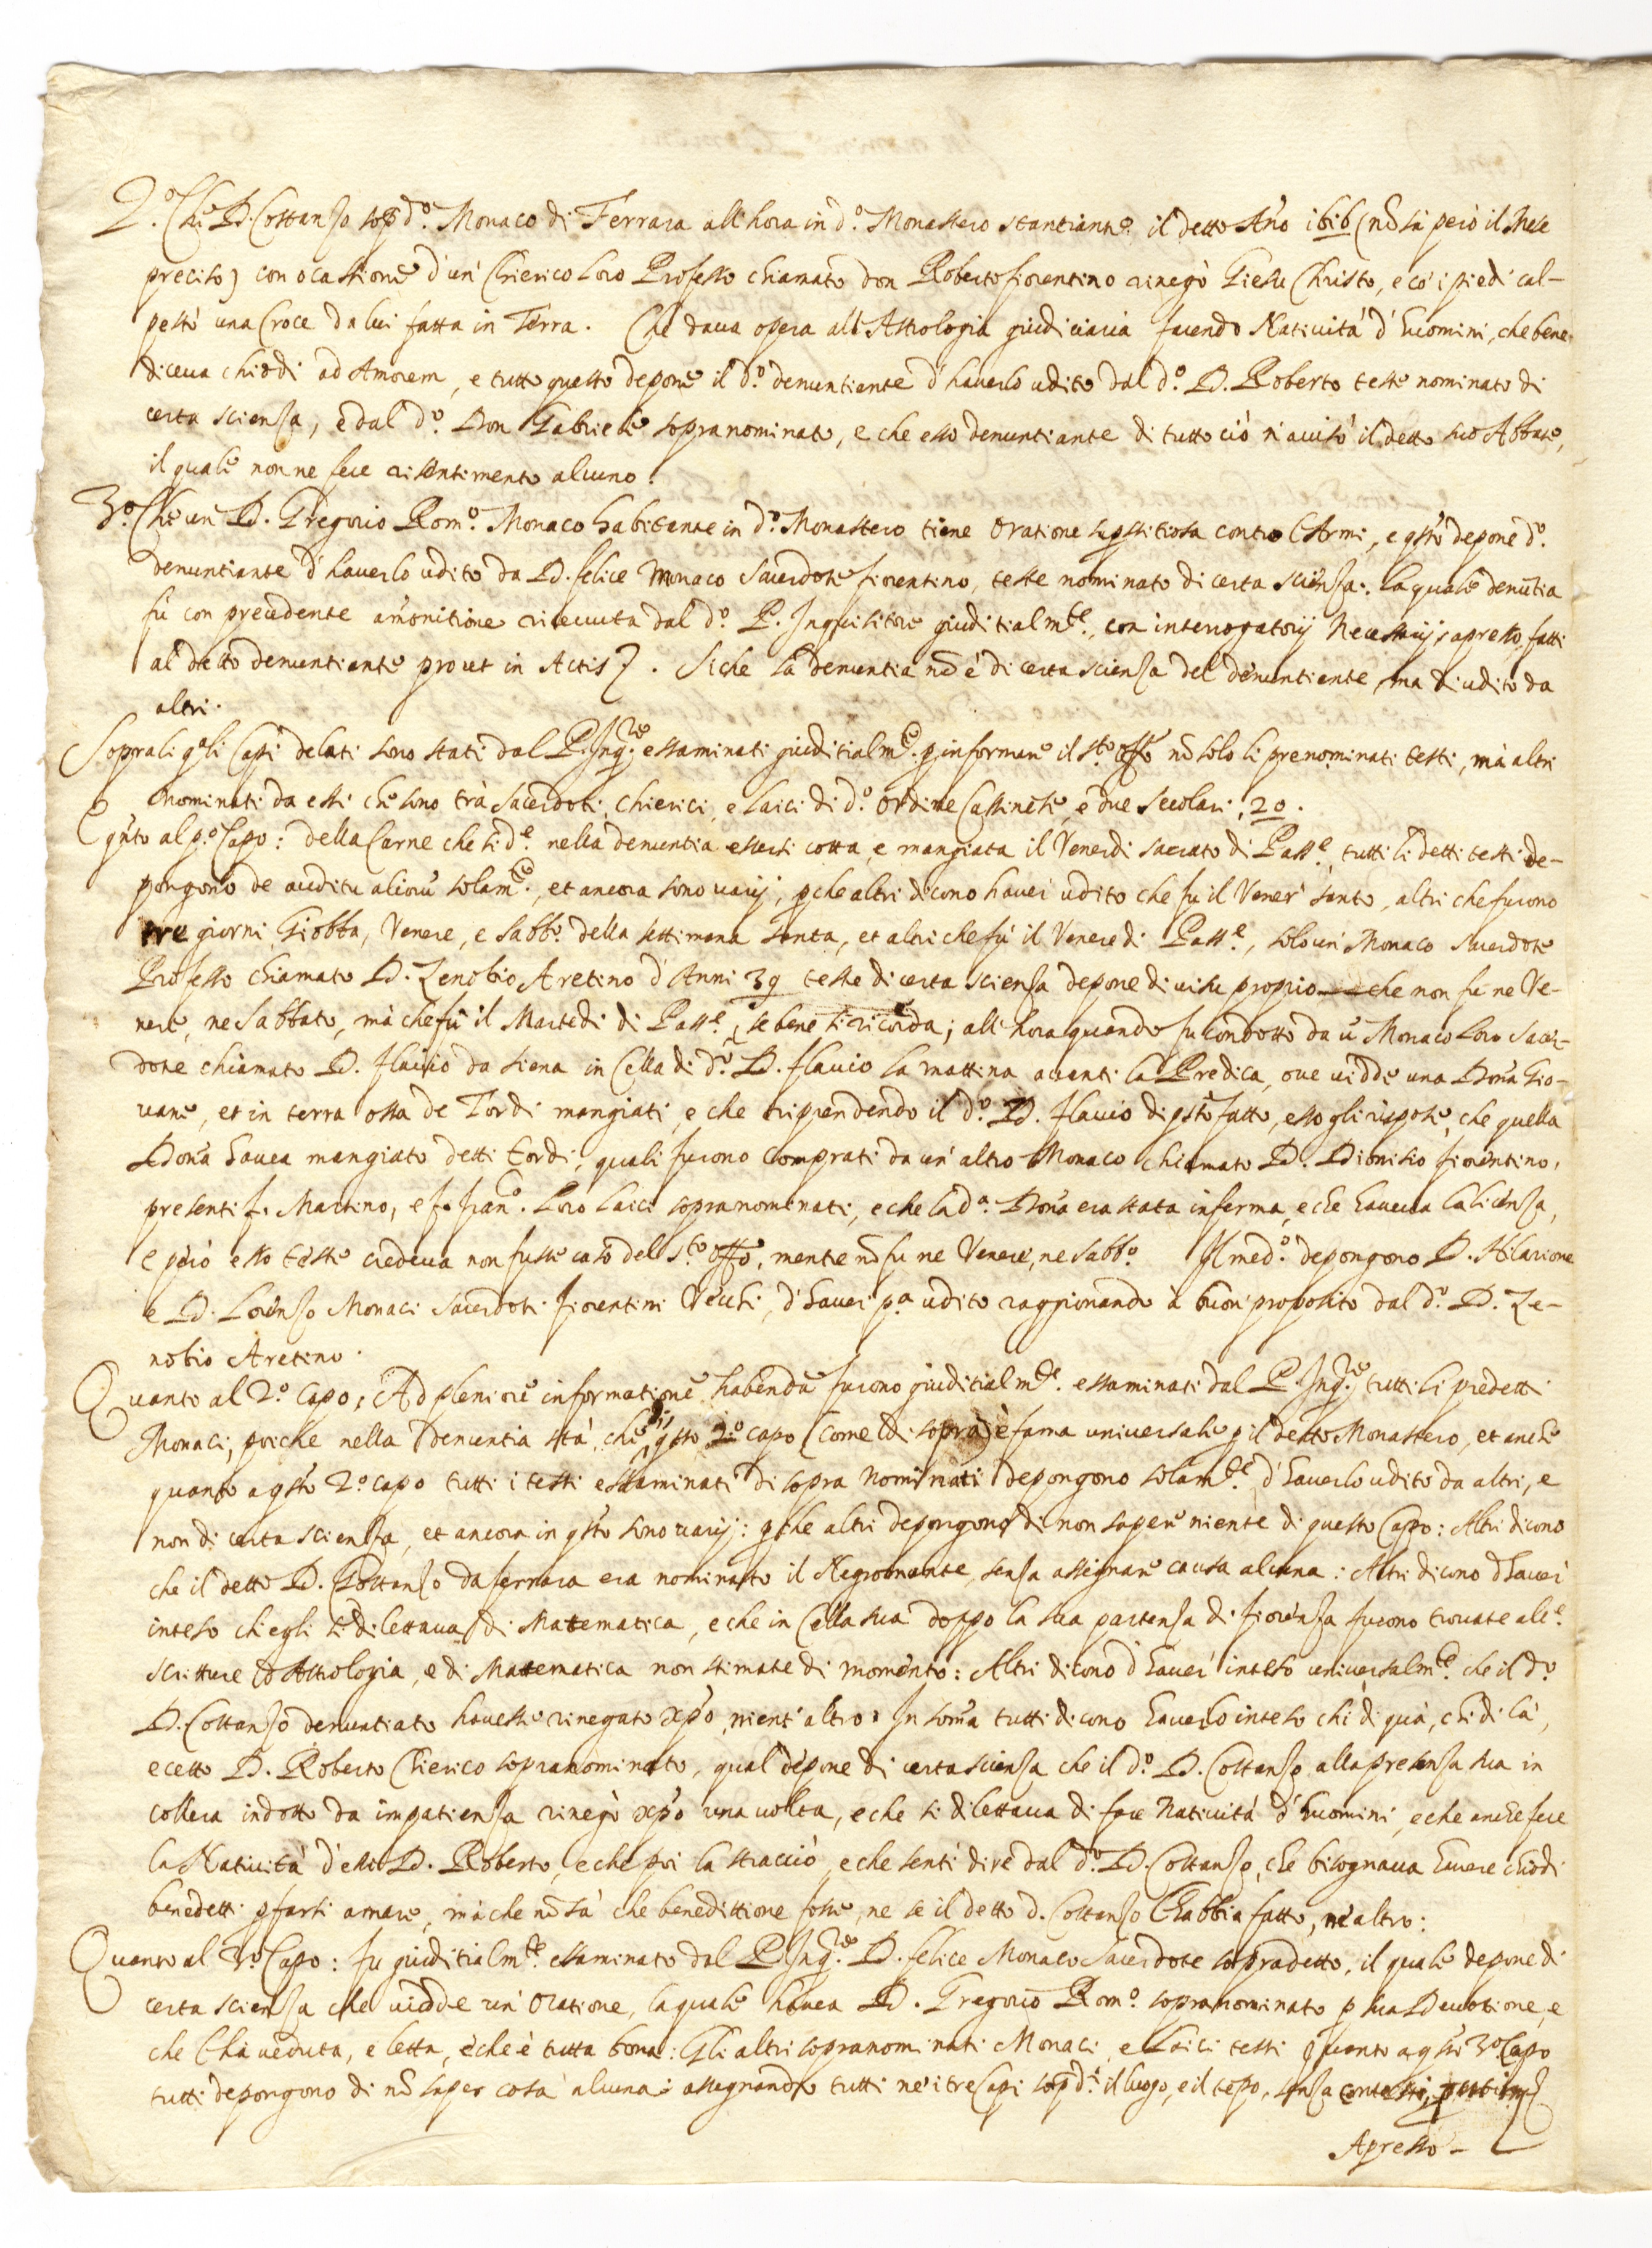 2.º Che D. Costanzo sop.dº Monaco di Ferrara all'hora in d.º Monastero stantiante il detto Año 1616 (nõ sà però il Mese
preciso) con ocassione d'un' Chierico loro Professo chiamato don Roberto fiorentino rinegò Giesu Christo, e cõ i piedi cal-
pestò una Croce da lui fatta in Terra. Che daua opera all'Astrologia giudiciaria facendo Natività d'huomini, che bene-
diceua chiodi ad Amorem, e tutto questo depone il d.º denuntiante d'hauerlo udito dal d.º D. Roberto teste nominato di
certa scienza, e dal d.º Don Gabriele sopranominato, e che esso denuntiante di tutto ciò n'auisò il detto suo Abbate,
il quale non ne fece risentimento alcuno.
3.º Che un D. Gregorio Rom.º Monaco habitante in d.º Monastero tiene Oratione supstitiosa contro l'Armi, e qsto depone d.º
denuntiante d'hauerlo udito da D. felice Monaco Sacerdote fiorentino, teste nominato di certa scienza: la quale denũtia
fù con precedente amonitione riceuuta dal d.º P. Inquisitore giuditialm.te, con interrogatorij Necessarij, apresso fatti
al detto denuntiante prout in Actis. Siche la denuntia nõ è di certa scienza del denuntiente, ma d'udito da
altri.
Sopra li q.li Capi delati sono stati dal P. Inq.re essaminati giuditialm.te p informare il s.to offo nõ solo li prenominati testi, mà altri
nominati da essi che sono trà sacerdoti, chierici, e laici di d.º Ordine Cassinese, e due secolari, 20.
Qnto al p.º Capo: della Carne che si d.e nella denuntia essersi cotta, e mangiata il Venerdi sacrato di Pass.e, tutti li detti testi de-
pongono de auditu aliorũ solam.te, et ancora sono varij, pche altri dicono hauer udito che fu il Vener' santo, altri che furono
tre giorni Giobba, Venere, e Sabb.º della settimana santa, et altri che fù il Venere di Pass.e, solo un' Monaco Sacerdote
Professo chiamato D. Zenobio Aretino d'Anni 39 teste di certa scienza depone di visu proprio che non fu ne Ve-
nere, ne Sabbato, mà che fù il Martedi di Pass.e, se bene si ricorda; all'hora quando fu condotto da ũ Monaco loro Sacer-
dote chiamato D. flauio da Siena in Cella di d.º D. flauio la mattina auanti la Predica, oue vidde una Doña Gio-
uane, et in terra ossa de Tordi mangiati, e che riprendendo il d.º D. flauio di qsto fatto, esso gli rispose, che quella
Doña hauea mangiato detti tordi, quali furono comprati da un' altro Monaco chiamato D. Dionisio fiorentino,
presenti f. Martino, e f. fran.º loro laici sopranominati, e che la d.a Doña era stata inferma, e che haueua la licenza,
e però esso teste credeua non fusse caso del s.to offo, mente nõ fu ne Venere, ne sabb.º Il med.º depongono D. Hilarione
e D. Lorenzo Monaci Sacerdoti fiorentini Vecchi, d'hauer p.a udito raggionando à buon' proposito dal d.º D. Ze-
nobio Aretino.
Quanto al 2.º Capo, Ad pleniorẽ informationẽ habendã furono giuditialm.te essaminati dal P. Inq.re tutti li predetti
Monaci, poiche nella denuntia stà, che di qsto 2.º capo (come di sopra) è fama universale p il detto Monastero, et anche
quanto a qsto 2.º capo tutti i testi essaminati di sopra Nominati depongono solam.te d'hauerlo udito da altri, e
non di certa scienza, et ancora in qsto sono varij: pche altri depongono di non sapere niente di questo Capo: Altri dicono
che il detto D. Costanzo da ferrara era nominato il Negromante, senza assegnare causa alcuna: Altri dicono d'hauer
inteso ch'egli si dilettaua di Matematica, e che in Cella sua doppo la sua partenza di fiorenza furono trouate alc.e
scritture d'Astrologia, e di Matematica non stimate di momento: Altri dicono d'hauer inteso universalm.te che il d.º
D. Costanzo denuntiato hauesse rinegato Xpo, nient'altro: In soma tutti dicono hauerlo inteso chi di quà, chi di là,
ecetto D. Roberto Chierico sopranominato, qual depone di certa scienza che il d.º D. Costanzo alla presenza sua in
collera indotto da impatienza rinegò Xpo una volta, e che si dilettaua di fare Natività d'huomini, e che anche fece
la Natività d'esso D. Roberto, e che poi la stracciò, e che sentì dire dal d.º D. Costanzo, che bisognaua hauere chiodi
benedetti p farsi amare, mà che nõ sà che benedittione fosse, ne se il detto d. Costanzo l'habbia fatto, nè altro:
Quanto al 3.º Capo: fu giuditialm.te essaminato dal P. Inq.re D. felice Monaco Sacerdote sopradetto, il quale depone di
certa scienza che vidde un' Oratione, la quale hauea D. Gregorio Rom.º sopranominato p sua Deuotione, e
che l'hà veduta, e letta, e che è tutta bona: Gli altri sopranominati Monaci, e Laici testi quanto a qsto 3.º Capo
tutti depongono di nõ saper cosa alcuna: assegnando tutti ne i tre Capi sop.di il luogo, e il tẽpo, senza contesti,
Apresso -